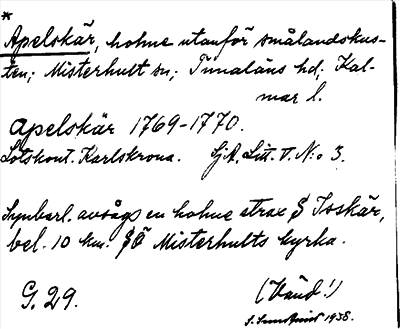 *
Apelskär, holme utanför smålandskus-
ten; Misterhult sn; Tunaläns hd; Kal-
mar l.
Apelskär 1769-1770.
Lotskont. Karlskrona. SjA, Litt. T. N:o 3.
Synbarl. avsågs en holme strax S Toskär,
bel. 10 km. SÖ Misterhults kyrka.
G. 29.
(Vänd!)
S. 1938.